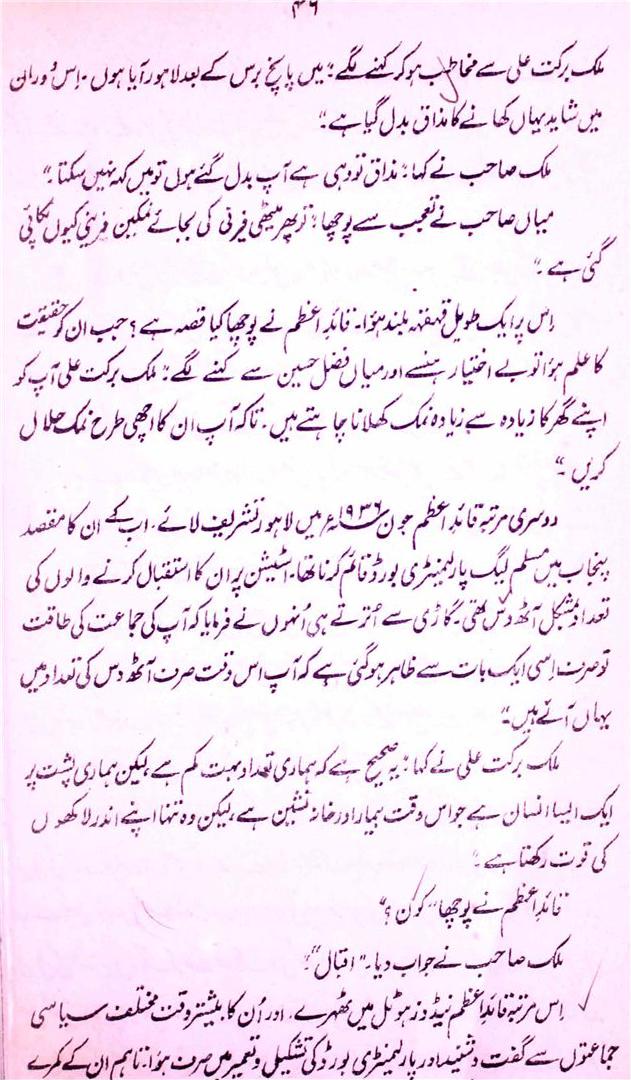 ۴۶
ملک برکت علی سے مخاطب ہو کر کہنے لگے: "میں پانچ برس کے بعد لاہور آیا ہوں۔ اِس دَوران
میں شاید یہاں کھانے کا مذاق بدل گیا ہے۔"
ملک صاحب نے کہا: "مذاق تو وہی ہے آپ بدل گئے ہوں تو میں کہہ نہیں سکتا۔"
میاں صاحب نے تعجب سے پوچھا: "تو پھر میٹھی فیرنی کی بجائے نمکین فرینی کیوں پکائی
گئی ہے۔"
اِس پر ایک طویل قہقہہ بلند ہؤا۔ قائدِ اعظم نے پوچھا کیا قصہ ہے؟ جب ان کو حقیقت
کا علم ہؤا تو بے اختیار ہنسے اور میاں فضل حسین سے کہنے لگے: "ملک برکت علی آپ کو
اپنے گھر کا زیادہ سے زیادہ نمک کھلانا چاہتے ہیں۔ تاکہ آپ ان کا اچھی طرح نمک حلال
کریں۔"
دوسری مرتبہ قائدِ اعظم جون ۱۹۳۶ء میں لاہور تشریف لائے۔ اب کے ان کا مقصد
پنجاب میں مسلم لیگ پارلیمنٹری بورڈ قائم کرنا تھا۔ اسٹیشن پر ان کا استقبال کرنے والوں کی
تعداد بمشکل آٹھ دس تھی۔ گاڑی سے اُترتے ہی اُنہوں نے فرمایا کہ آپ کی جماعت کی طاقت
تو صرف اِسی ایک بات سے ظاہر ہو گئی ہے کہ آپ اس وقت صرف آٹھ دس کی تعداد میں
یہاں آئے ہیں۔"
ملک برکت علی نے کہا: "یہ صحیح ہے کہ ہماری تعداد بہت کم ہے، لیکن ہماری پشت پر
ایک ایسا انسان ہے جو اس وقت بیمار اور خانہ نشین ہے، لیکن وہ تنہا اپنے اندر لاکھوں
کی قوت رکھتا ہے۔"
قائدِ اعظم نے پوچھا "کون؟"
ملک صاحب نے جواب دیا۔ "اقبال"!
اِس مرتبہ قائدِ اعظم نیڈوز ہوٹل میں ٹھہرے۔ اور اُن کا بیشتر وقت مختلف سیاسی
جماعتوں سے گفت و شنید اور پارلیمنٹری بورڈ کی تشکیل و تعمیر میں صرف ہؤا۔ تاہم ان کے کمرے